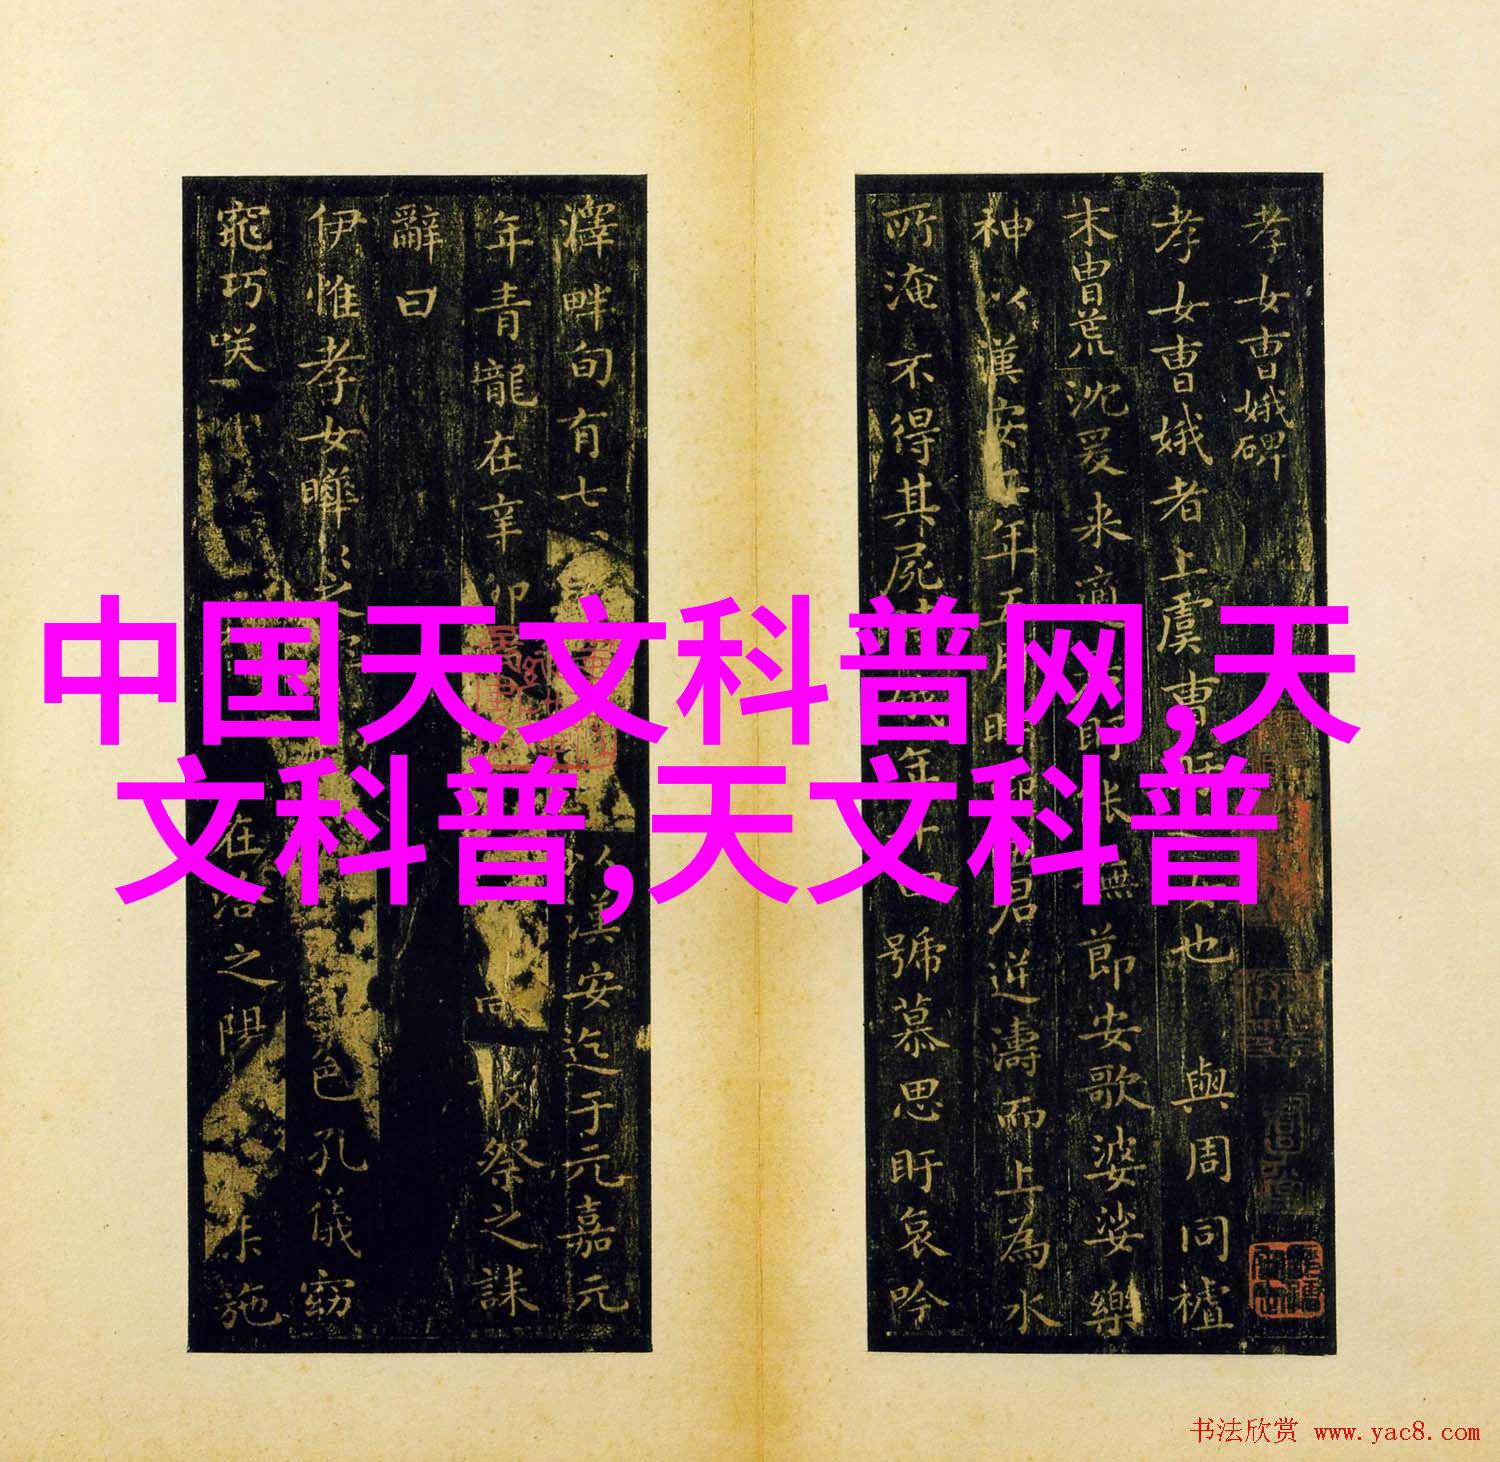 孝女曹娥碑
孝女曹娥者上虞曹
也
與周同
末曹荒沈爰来適
節安歌婆娑樂
神以漢安
年五月時
君逆濤而上為水
所淹不得其屍
年十
號慕思盱哀吟
澤畔旬有七
漢安迄于元嘉元
年青龍在辛卯
祭之誄
辭曰
伊惟孝女曄
之
色孔儀窈
窕巧咲
在洽之陽
施
中国天文科普网,天
文科普,天文科普
书法欣赏 www.yac8.com